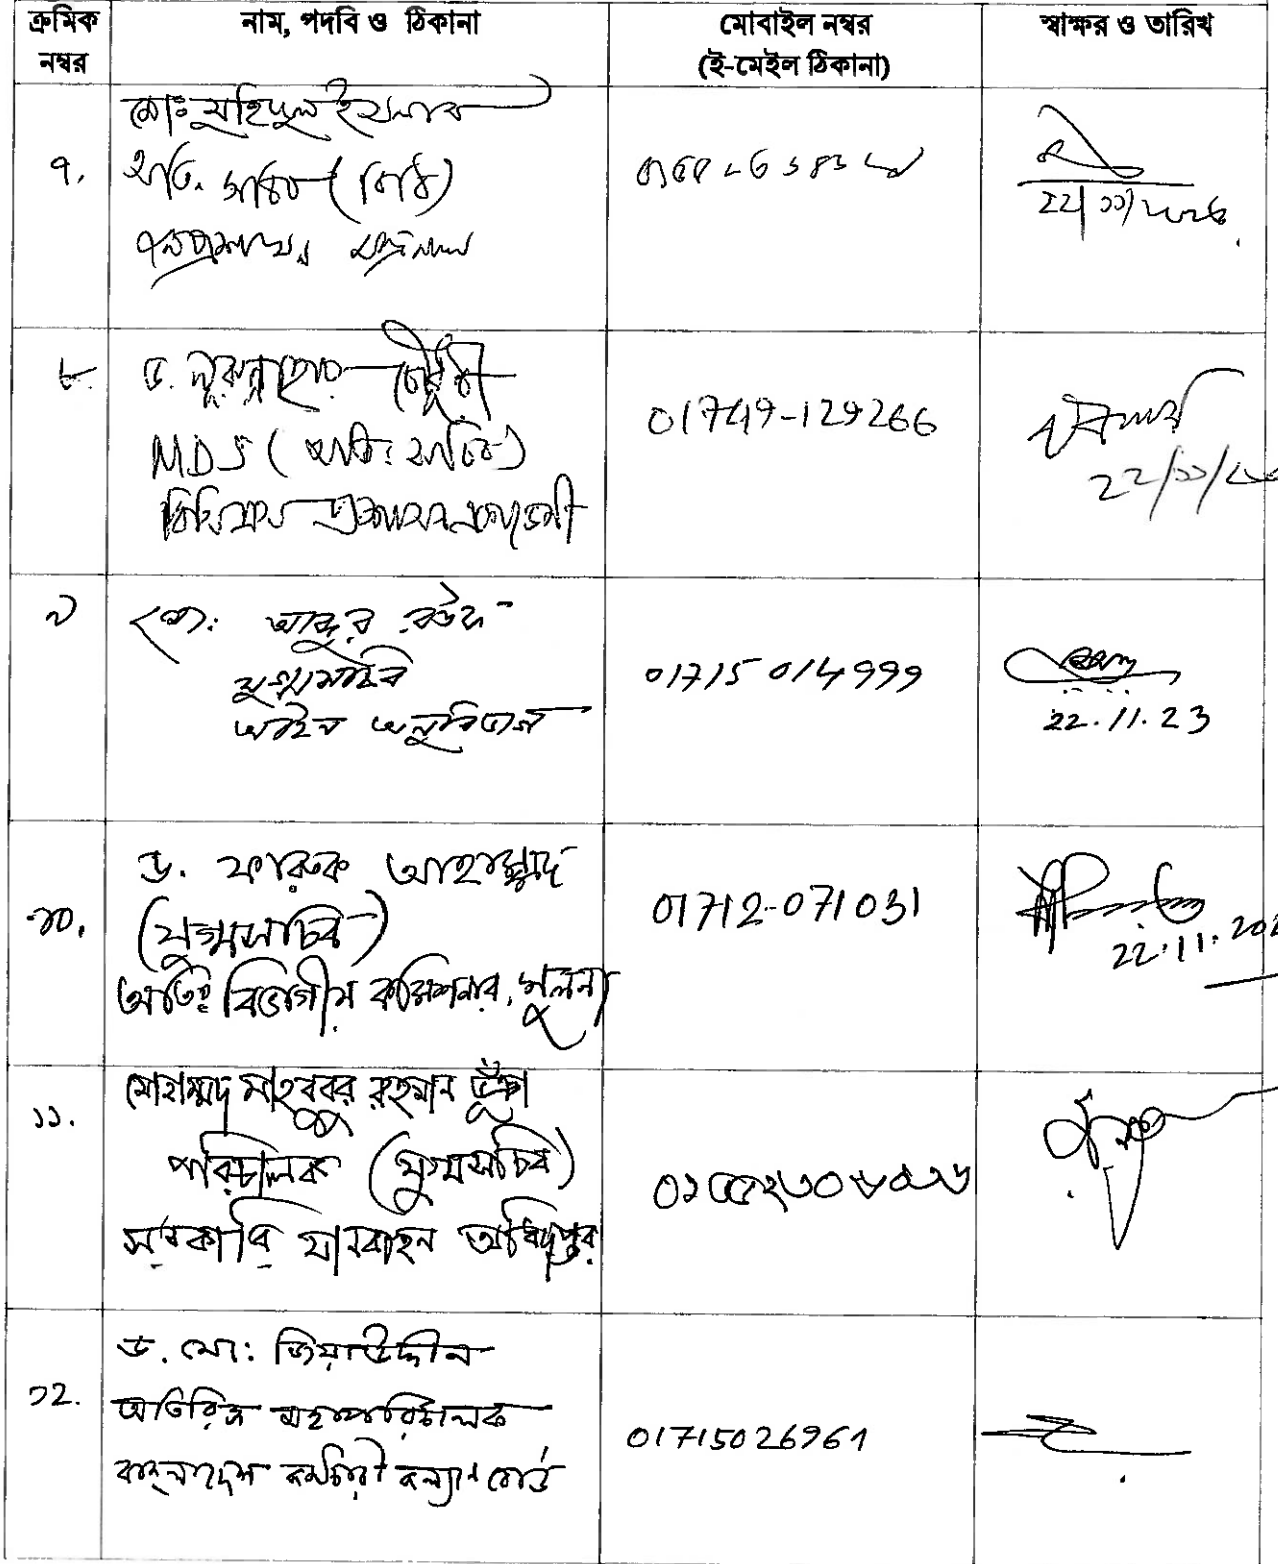 ক্রমিক নম্বর
নাম, পদবি ও ঠিকানা
মোবাইল নম্বর
(ই-মেইল ঠিকানা)
স্বাক্ষর ও তারিখ
৭.
মোঃ মুহিদুল ইসলাম
অতি. সচিব (বিধি)
জনপ্রশাসন মন্ত্রণালয়
22/১১/২০২৩
৮
ড. নূরুন্নাহার চৌধুরী
MDS (অতি: সচিব)
বিসিএস প্রশাসন একাডেমী
01749-129266
22/১১/
৯
মো: আব্দুর রউফ
যুগ্মসচিব
আইন অনুবিভাগ
01715 014999
22.11.23
১০.
ড. ফারুক আহাম্মদ
(যুগ্মসচিব)
অতিঃ বিভাগীয় কমিশনার, খুলনা
01712-071031
22.11.202
১১.
মোহাম্মদ মাহবুবুর রহমান ভূঁঞা
পরিচালক (যুগ্মসচিব)
সরকারি যানবাহন অধিদপ্তর
১2.
ড. মো: জিয়াউদ্দীন
অতিরিক্ত মহাপরিচালক
বাংলাদেশ কর্মচারী কল্যাণ বোর্ড
01715026961